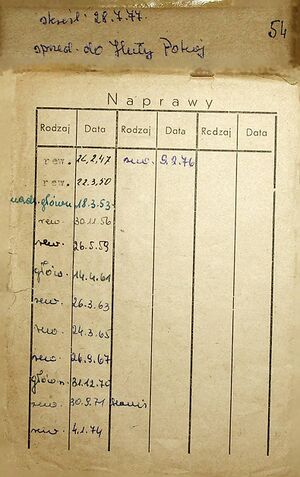 skreśl. 28.7.77.
54
sprzed. do Huty Pokój
Naprawy
Rodzaj Data Rodzaj Data Rodzaj Data
rew. 26.2.47 rew. 9.2.76
rew. 22.3.50
główn. 18.3.53
rew. 30.11.56
rew. 26.5.59
główn. 14.4.61
rew. 26.3.63
rew. 24.3.65
rew. 26.9.67
główn. 31.12.70
rew. 30.9.71
rew. 4.1.74